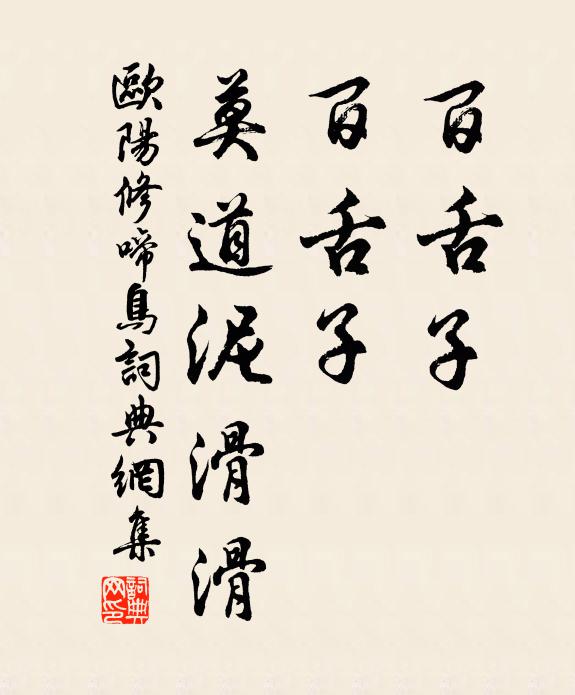 百舌子
百舌子
莫道泥滑滑
歐陽修啼鳥詞典網集
詞典网印